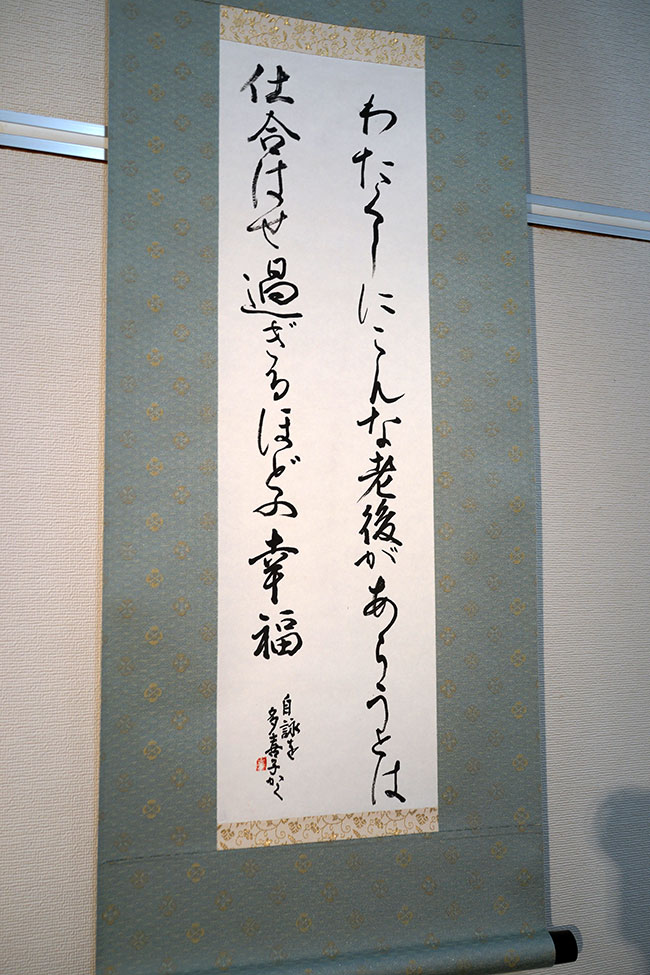 わたくしにこんな老後があらうとは
仕合はせ過ぎるほどの幸福
自詠を
多喜子かく